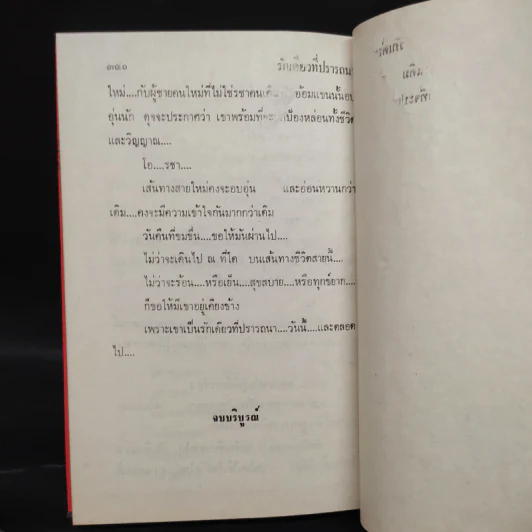 ๓๘๐ รักเดียวที่ปรารถนา
ใหม่....กับผู้ชายคนใหม่ที่ไม่ใช่รชาคนเดิม อ้อมแขนนั้นอบ
อุ่นนัก ดุจจะประกาศว่า เขาพร้อมที่จะปกป้องหล่อนทั้งชีวิต
และวิญญาณ....
โอ....รชา....
เส้นทางสายใหม่คงจะอบอุ่น และอ่อนหวานกว่า
เดิม....คงจะมีความเข้าใจกันมากกว่าเดิม
วันคืนที่ขมขื่น....ขอให้มันผ่านไป....
ไม่ว่าจะเดินไป ณ ที่ใด บนเส้นทางชีวิตสายนี้....
ไม่ว่าจะร้อน....หรือเย็น....สุขสบาย....หรือทุกข์ยาก....
ก็ขอให้มีเขาอยู่เคียงข้าง
เพราะเขาเป็นรักเดียวที่ปรารถนา....วันนี้....และตลอด
ไป....
จบบริบูรณ์